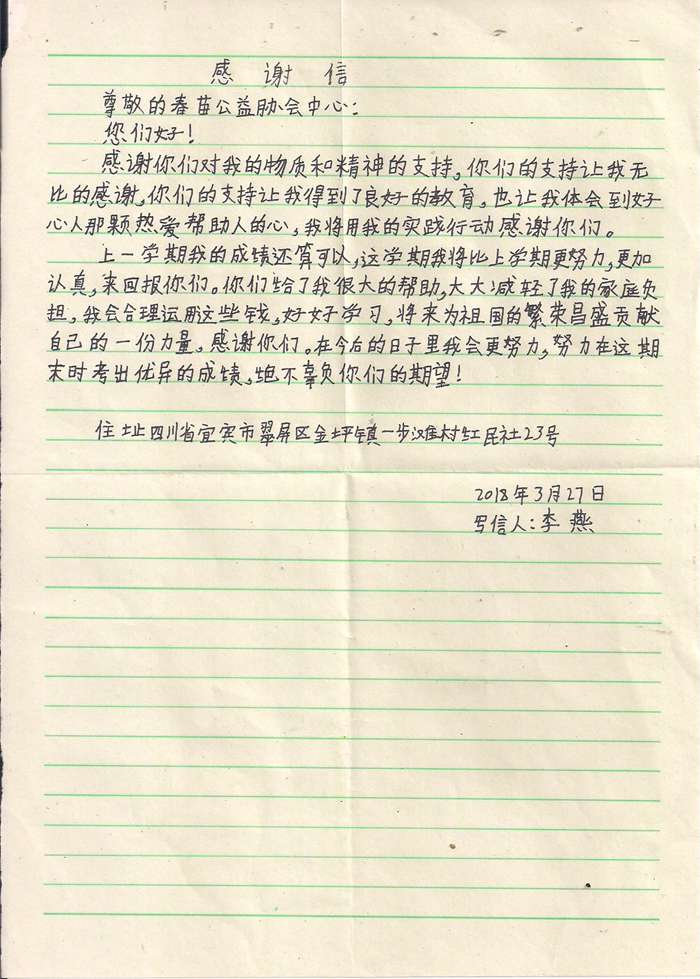 感谢信
尊敬的春苗公益协会中心:
您们好!
感谢你们对我的物质和精神的支持,你们的支持让我无
比的感谢,你们的支持让我得到了良好的教育,也让我体会到好
心人那颗热爱帮助人的心,我将用我的实践行动感谢你们。
上一学期我的成绩还算可以,这学期我将比上学期更努力,更加
认真,来回报你们。你们给了我很大的帮助,大大减轻了我的家庭负
担,我会合理运用这些钱,好好学习,将来为祖国的繁荣昌盛贡献
自己的一份力量,感谢你们。在今后的日子里我会更努力,努力在这期
末时考出优异的成绩,绝不辜负你们的期望!
住址四川省宜宾市翠屏区金坪镇一步滩村红民社23号
2018年3月27日
写信人:李燕